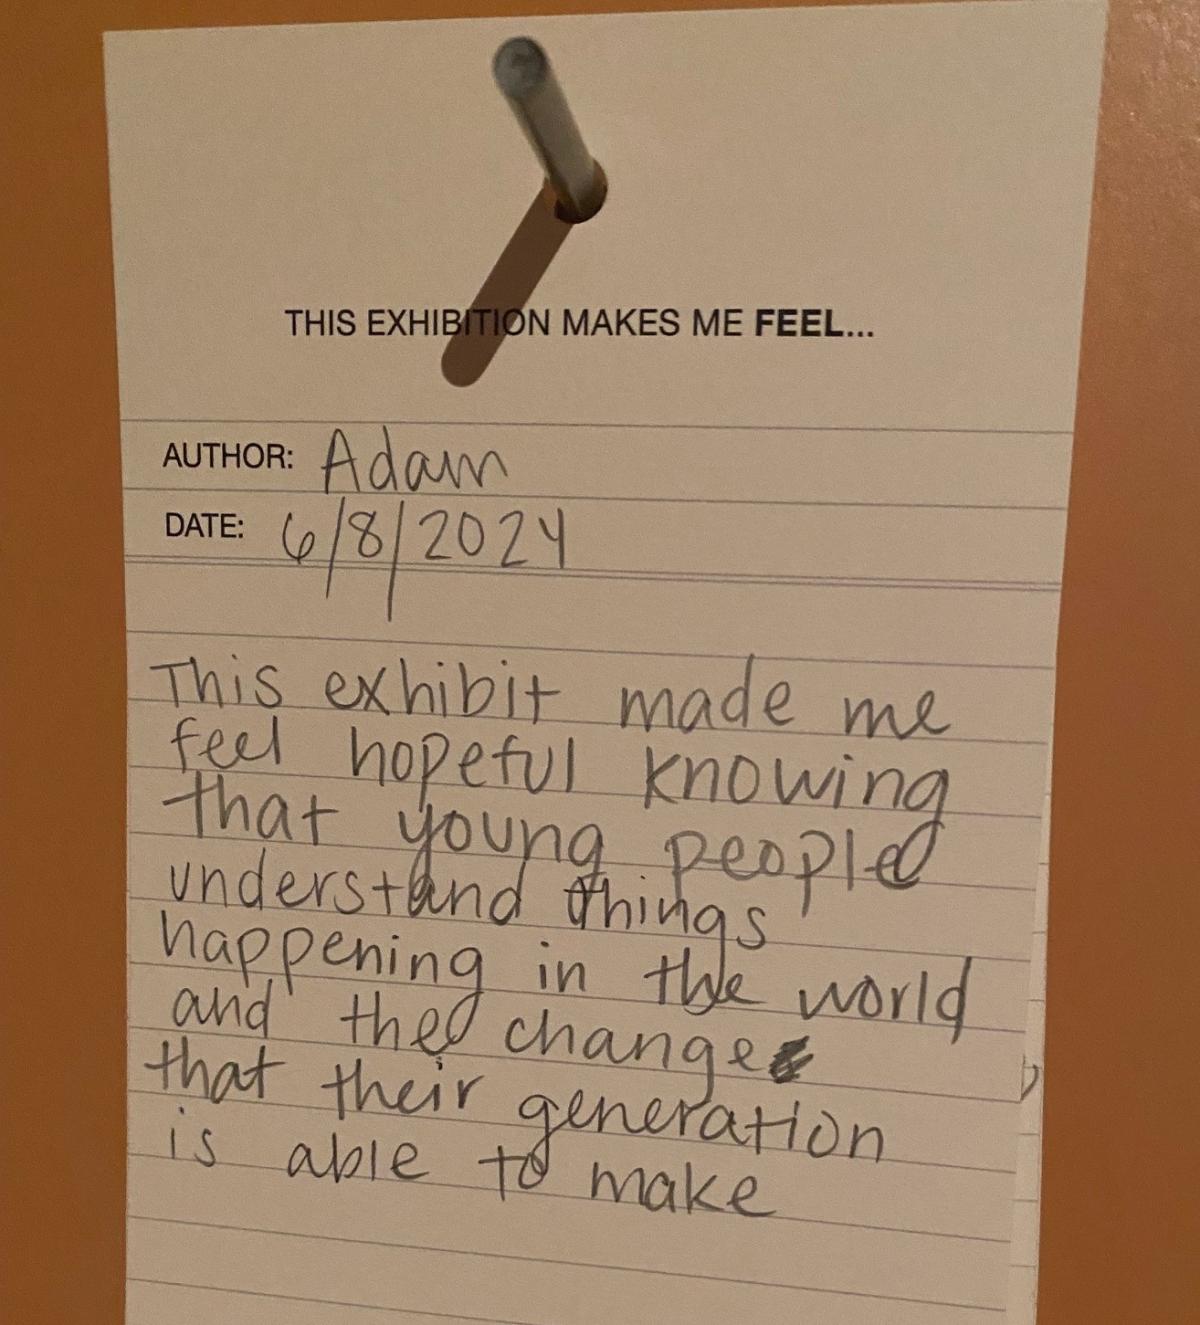 THIS EXHIBITION MAKES ME FEEL...
AUTHOR: Adam
DATE: 6/8/2024
This exhibit made me
feel hopeful knowing
that young people
understand things
happening in the world
and the change
that their generation
is able to make